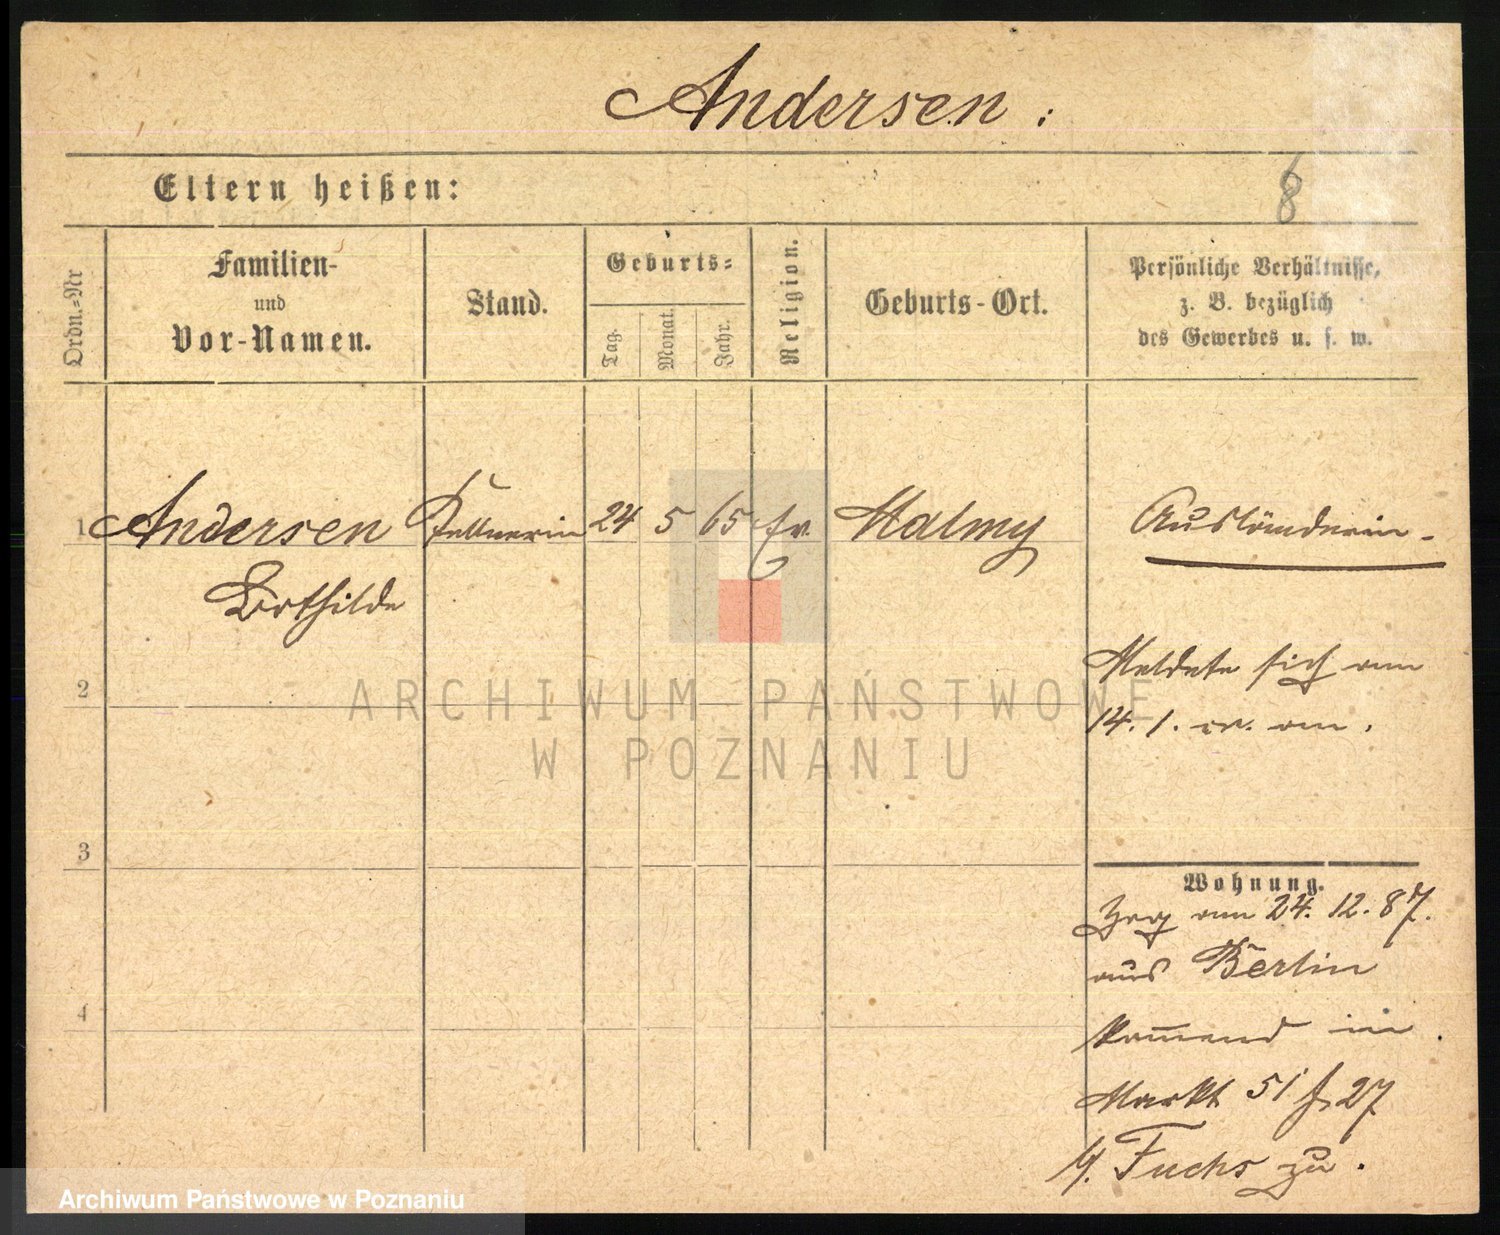 Andersen.
Eltern heißen:
8
Ordn.-Nr
Familien-
und
Vor-Namen.
Stand.
Geburts-
Tag.
Monat.
Jahr.
Religion.
Geburts-Ort.
Persönliche Verhältnisse,
z. B. bezüglich
des Gewerbes u. s. w.
1 Andersen Kellnerin 24 5 65 Ev. Malmy Ausländerin
Bothilde
Meldete sich am
14. 1. cr. an.
2
3
4
Wohnung.
Zog am 24. 12. 87.
aus Berlin
kom̅end in
Markt 51 27
Fuchs zu.
ARCHIWUM PAŃSTWOWE
W POZNANIU
Archiwum Państwowe w Poznaniu